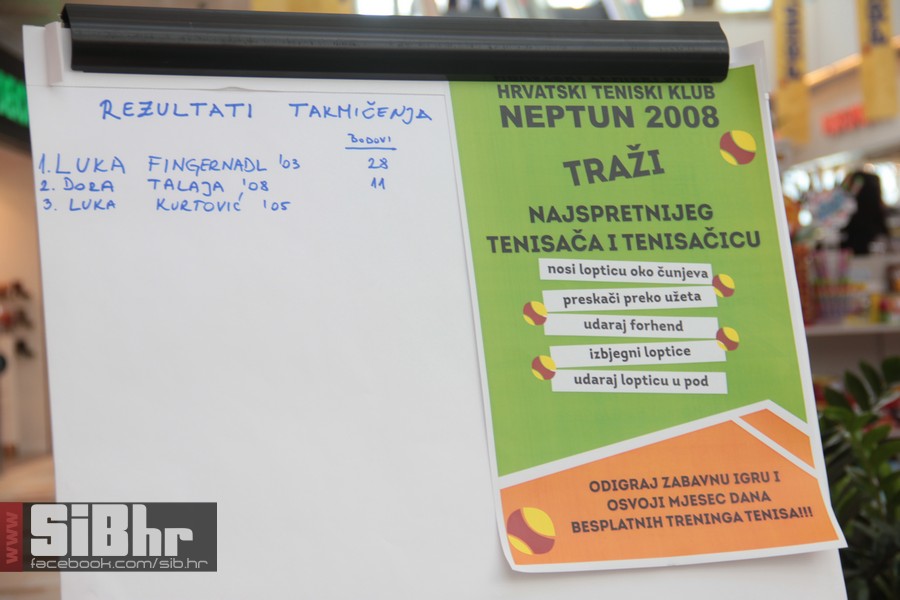 REZULTATI TAKMIČENJA
BODOVI
1. LUKA FINGERNADL '03 28
2. DORA TALAJA '08 11
3. LUKA KURTOVIĆ '05
HRVATSKI TENISKI KLUB
NEPTUN 2008
TRAŽI
NAJSPRETNIJEG
TENISAČA I TENISAČICU
nosi lopticu oko čunjeva
preskači preko užeta
udaraj forhend
izbjegni loptice
udaraj lopticu u pod
ODIGRAJ ZABAVNU IGRU I
OSVOJI MJESEC DANA
BESPLATNIH TRENINGA TENISA!!!
www SiBhr
facebook.com/sib.hr